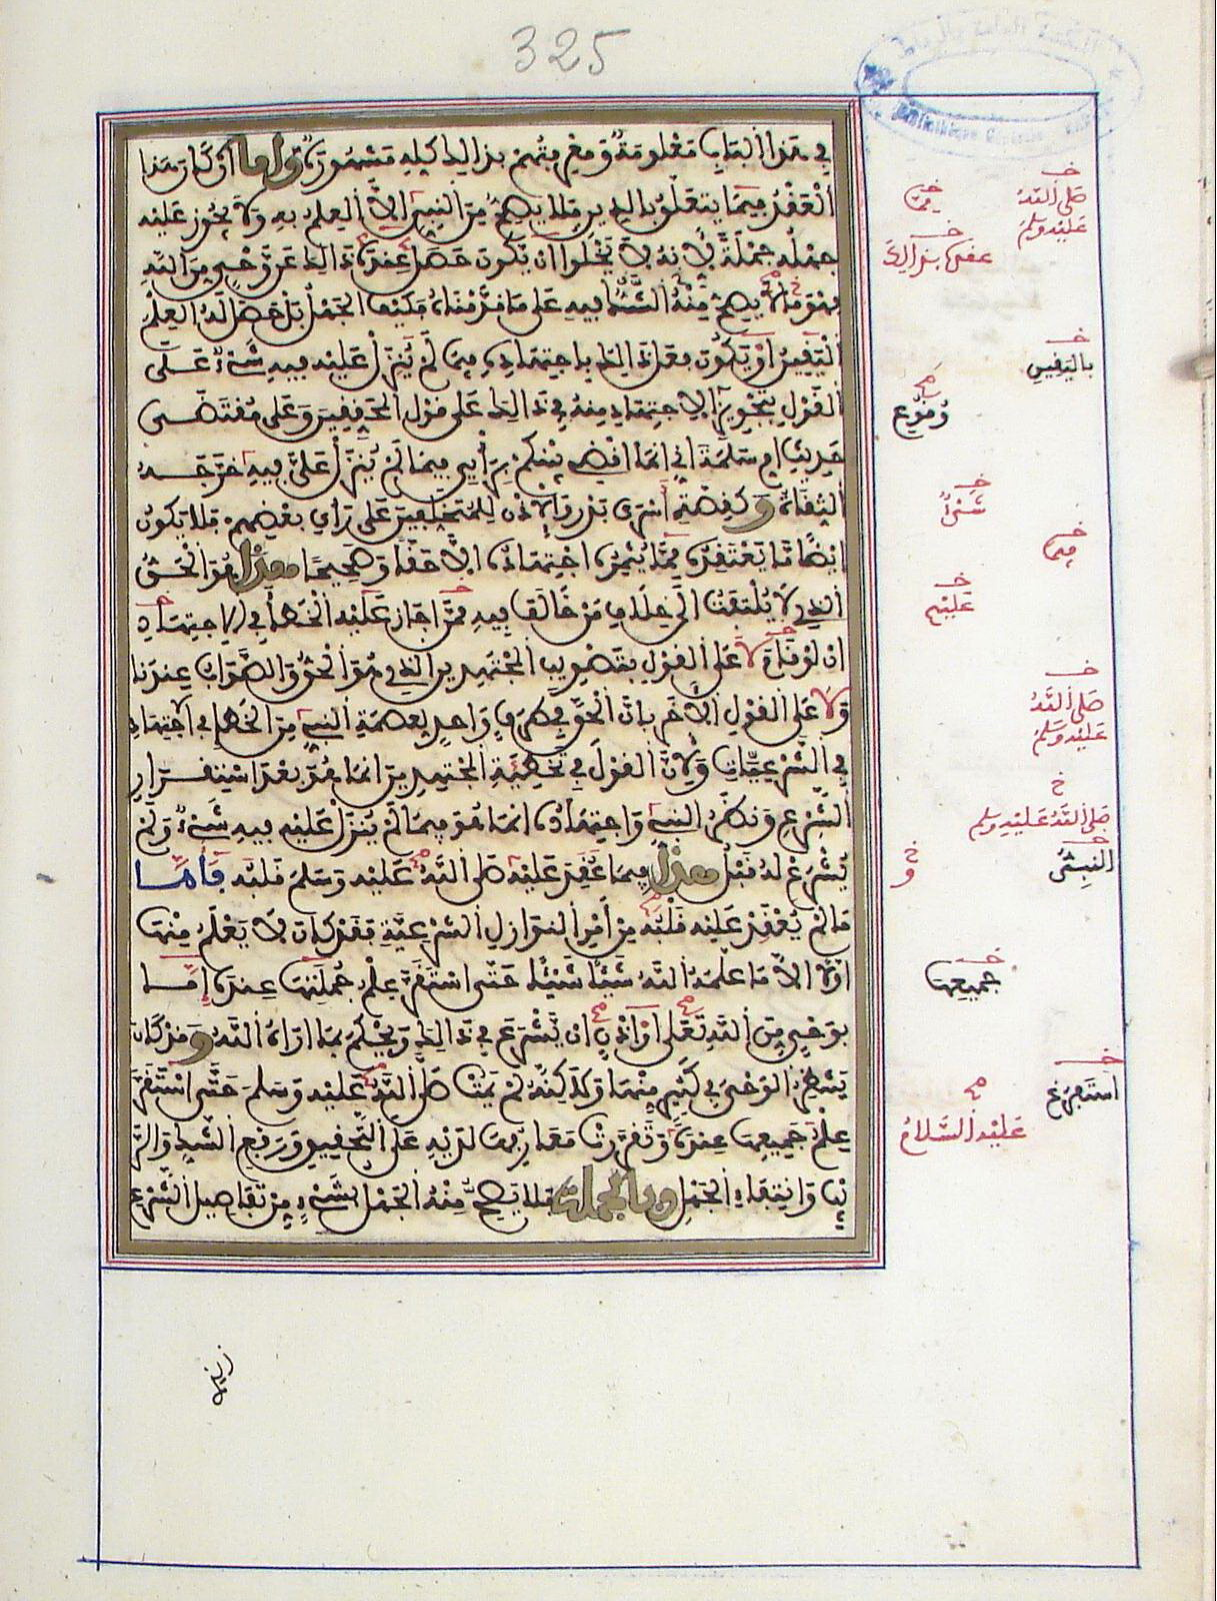 325
في هذا الباب معلومة ومعرفتهم بذالك كله مشهورة وأما ان كان هذا
العقد فيما يتعلق بالدين فلا يصح من النبي الا العلم به ولا يجوز عليه
جهله جملة لانه لا يخلوا ان يكون حصل عنده ذالك عن وحي من الله
فهو ما لا يصح منه الشك فيه على ما قدمناه فكيف الجهل بل حصل له العلم
اليقين او يكون فعل ذالك باجتهاده فيما لم ينزل عليه فيه شيء على
القول بتجويز الاجتهاد منه في ذالك على قول المحققين وعلى مقتضى
حديث ام سلمة اني انما اقضي بينكم برأيي فيما لم ينزل علي فيه خرجه
الثقات وكقصة اسرى بدر والاذن للمتخلفين على رأي بعضهم فلا يكون
ايضا ما يعتقده مما يثمره اجتهاده الا حقا وصحيحا هذا هو الحق
الذي لا يلتفت الى خلاف من خالف فيه ممن اجاز عليه الخطأ في الاجتهاد
ان لو فاق لا على القول بتصويب المجتهدين الذي هو الحق والصواب عندنا
ولا على القول الاخر بان الحق في طرف واحد لعصمة النبي من الخطإ في الاجتهاد
في الشرعيات ولان القول في تخطئة المجتهدين انما هو بعد استقرار
الشرع ونظر النبي واجتهاده انما هو فيما لم ينزل عليه فيه شيء ولم
يشرع له قبل هذا فيما عقد عليه صلى الله عليه وسلم قلبه فأما
ما لم يعقد عليه قلبه من أمر النوازل الشرعية فقد كان لا يعلم منها
اولا الا ما علمه الله شيئا شيئا حتى استقر علم جملتها عنده إما
بوحي من الله تعلى او اذن ان يشرع في ذالك ويحكم بما اراه الله وقد كان
ينتظر الوحي في كثير منها ولاكنه لم يمت صلى الله عليه وسلم حتى استقر
علم جميعها عنده وتقررت معارفها لديه على التحقيق ورفع الشك والريـ
ـب وانتفاء الجهل وبالجملة فلا يصح منه الجهل بشيء من تفاصيل الشرع
صلى الله
عليه وسلم
باليقين
وقوع
شيئا
عليهم
صلى الله
عليه وسلم
صلى الله عليه وسلم
جميعها
استفرغ
عليه السلام